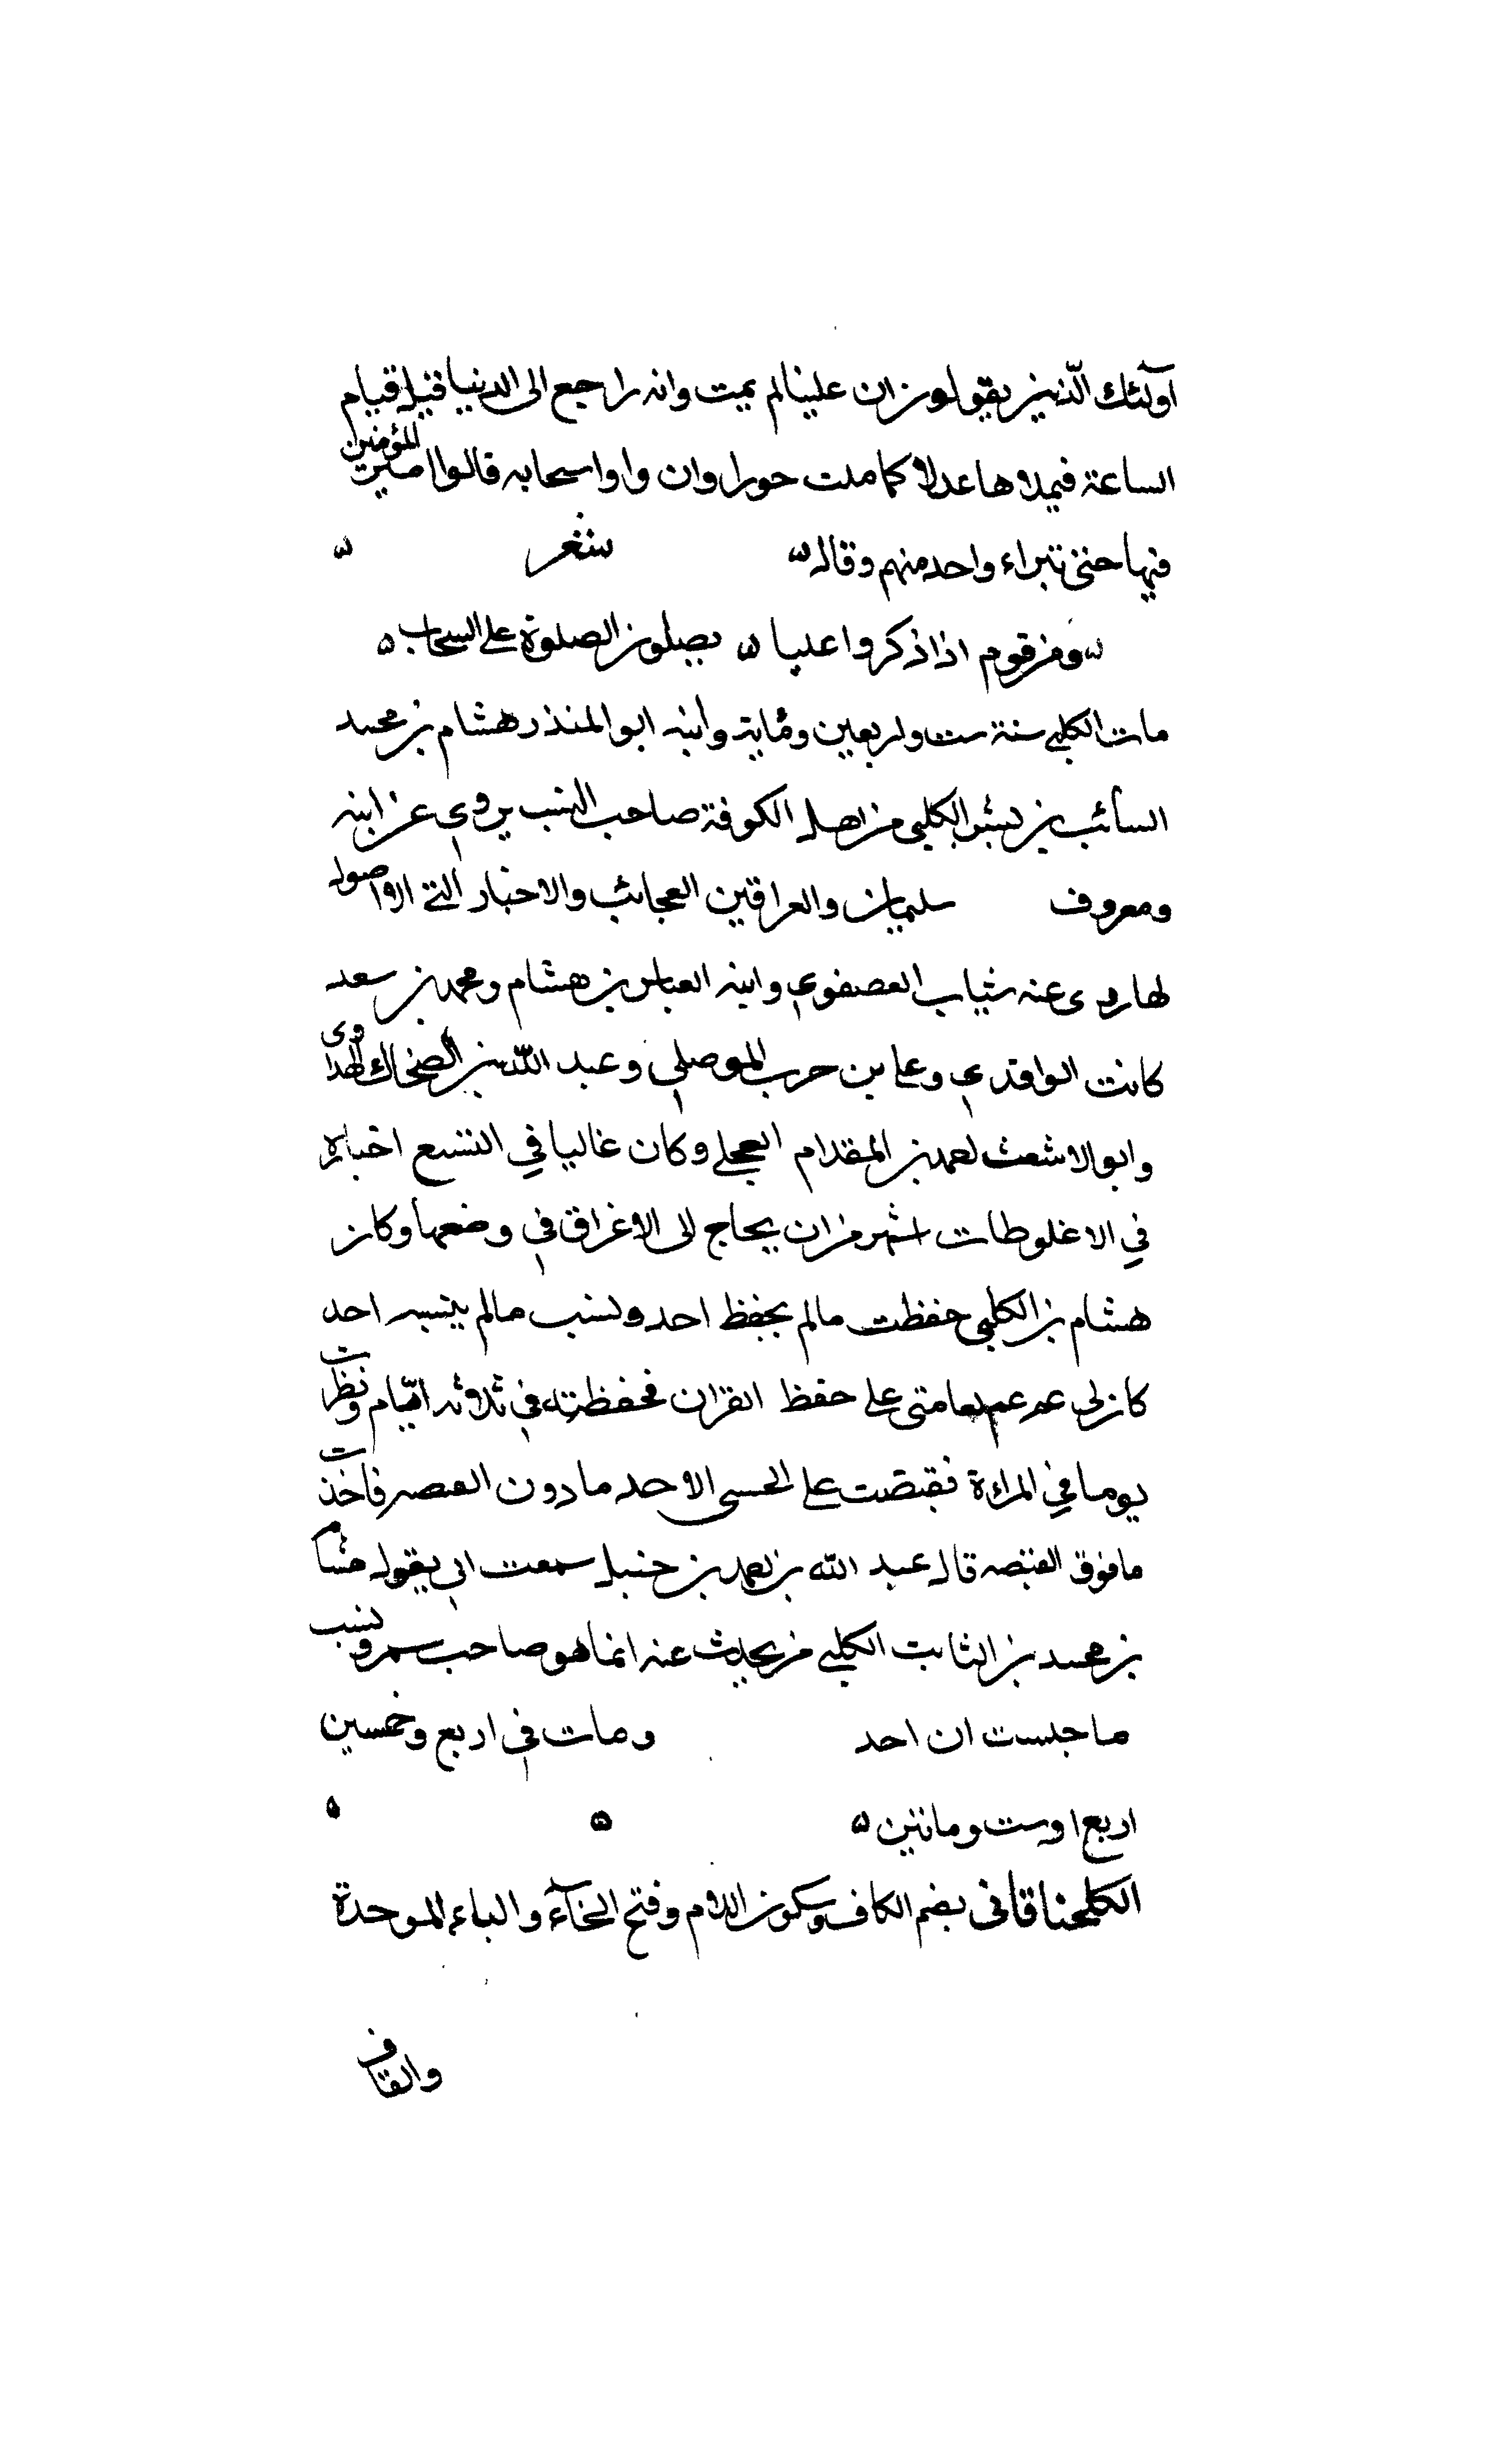 اولئك الّذين يقولون ان علينا لم يمت وانه راجع الى الدنيا قبل قيام
الساعة فيملاها عدلا كما ملت حورا وان راوا سحابه قالوا امير المؤمنين
فيها حتى تبراء واحد منهم وقال شعر
ومن قوم اذا ذكروا عليا يصلون الصلوة على السحاب
مات الكلبي سنة ست واربعين ومائة وابنه ابو المنذر هشام بن محمد
السائب بن بشر الكلبي من اهل الكوفة صاحب النسب يروي عن ابيه
ومعروف سليمان والعراقين العجائب والاخبار التي لا اصول
لها روى عنه شباب العصفوي وابنه العباس بن هشام ومحمد بن سعد
كانت الواقدي وعلي بن حرب الموصلي وعبد الله بن الضحاك الهدادى
وابو الاشعث احمد بن المقدام العجلي وكان غاليا في التشيع اخباره
في الاغلوطات اشهر من ان يحاج الى الاغراق في وضعها وكان
هشام بن الكلبي حفظت مالم يحفظ احد ونسب مالم ينسه احد
كان لي عم يعامتى على حفظ القران فحفظته في ثلاثه ايّام ونظرت
يوما في المراة فقبضت على لاحد مادون القبصه فاخذت
مافوق القبصه قال عبد الله بن احمد بن حنبل سمعت ابي يقول هشام
بن محمد بن الثابت الكلبي من يحدث عنه انما هو صاحب سمر ونسب
ماجلست ان احد ومات في اربع وخمسين
اربع اوست ومائتين
الكلبخناقانى بضم الكاف وسكون اللام وفتح الخاء والباء الموحدة
والقاف